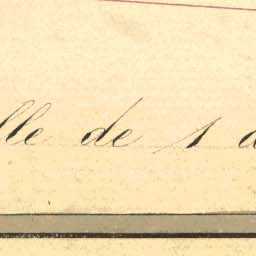 lle de 1 d